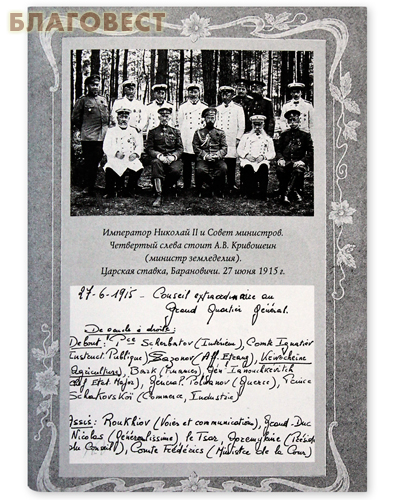 БЛАГОВЕСТ
Император Николай II и Совет министров.
Четвертый слева стоит А.В. Кривошеин
(министр земледелия).
Царская ставка, Барановичи. 27 июня 1915 г.
27-6-1915 - Conseil extraordinaire au
Grand Quartier Général.
De gauche à droite:
Debout: Pce Scherbatov (Intérieur), Comte Ignatiev
Instruct. Publique) Sazonov (Aff. Etrang), Krivocheine
Agriculture), Bark (Finances), Gén Ianouchkevitch
Etat. Major), Général Polivanov (Guerre), Prince
(Commerce, Industrie)
Assis: Roukhlov (Voies et communication), Grand-Duc
Nicolas (Généralissime) le Tsar, Goremykine (Présid
du Conseil), Comte (Ministre de la Cour)